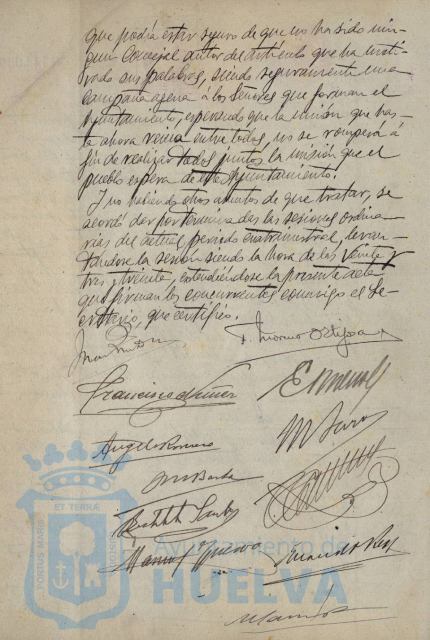 que podía estar seguro de que no ha sido nin-
gun Concejal autor del artículo que ha moti-
vado sus palabras, siendo seguramente una
campaña agena á los Señores que forman el
Ayuntamiento, esperando que la unión que has-
ta ahora reina entre todos, no se romperá á
fin de realizar todos juntos la misión que el
pueblo espera de este Ayuntamiento.
Y no habiendo otros asuntos de que tratar, se
acordó dar por terminadas las sesiones ordina-
rias del actual periodo cuatrimestral, levan-
tándose la sesión siendo la hora de las veinte y
tres y treinta, extendiéndose la presente acta
que firman los concurrentes conmigo el Se-
cretario, que certifico.
Francisco Nuñez
Angel Romero
M Barba
ET TERRÆ
PORTUS MARIS
Ayuntamiento de
HUELVA